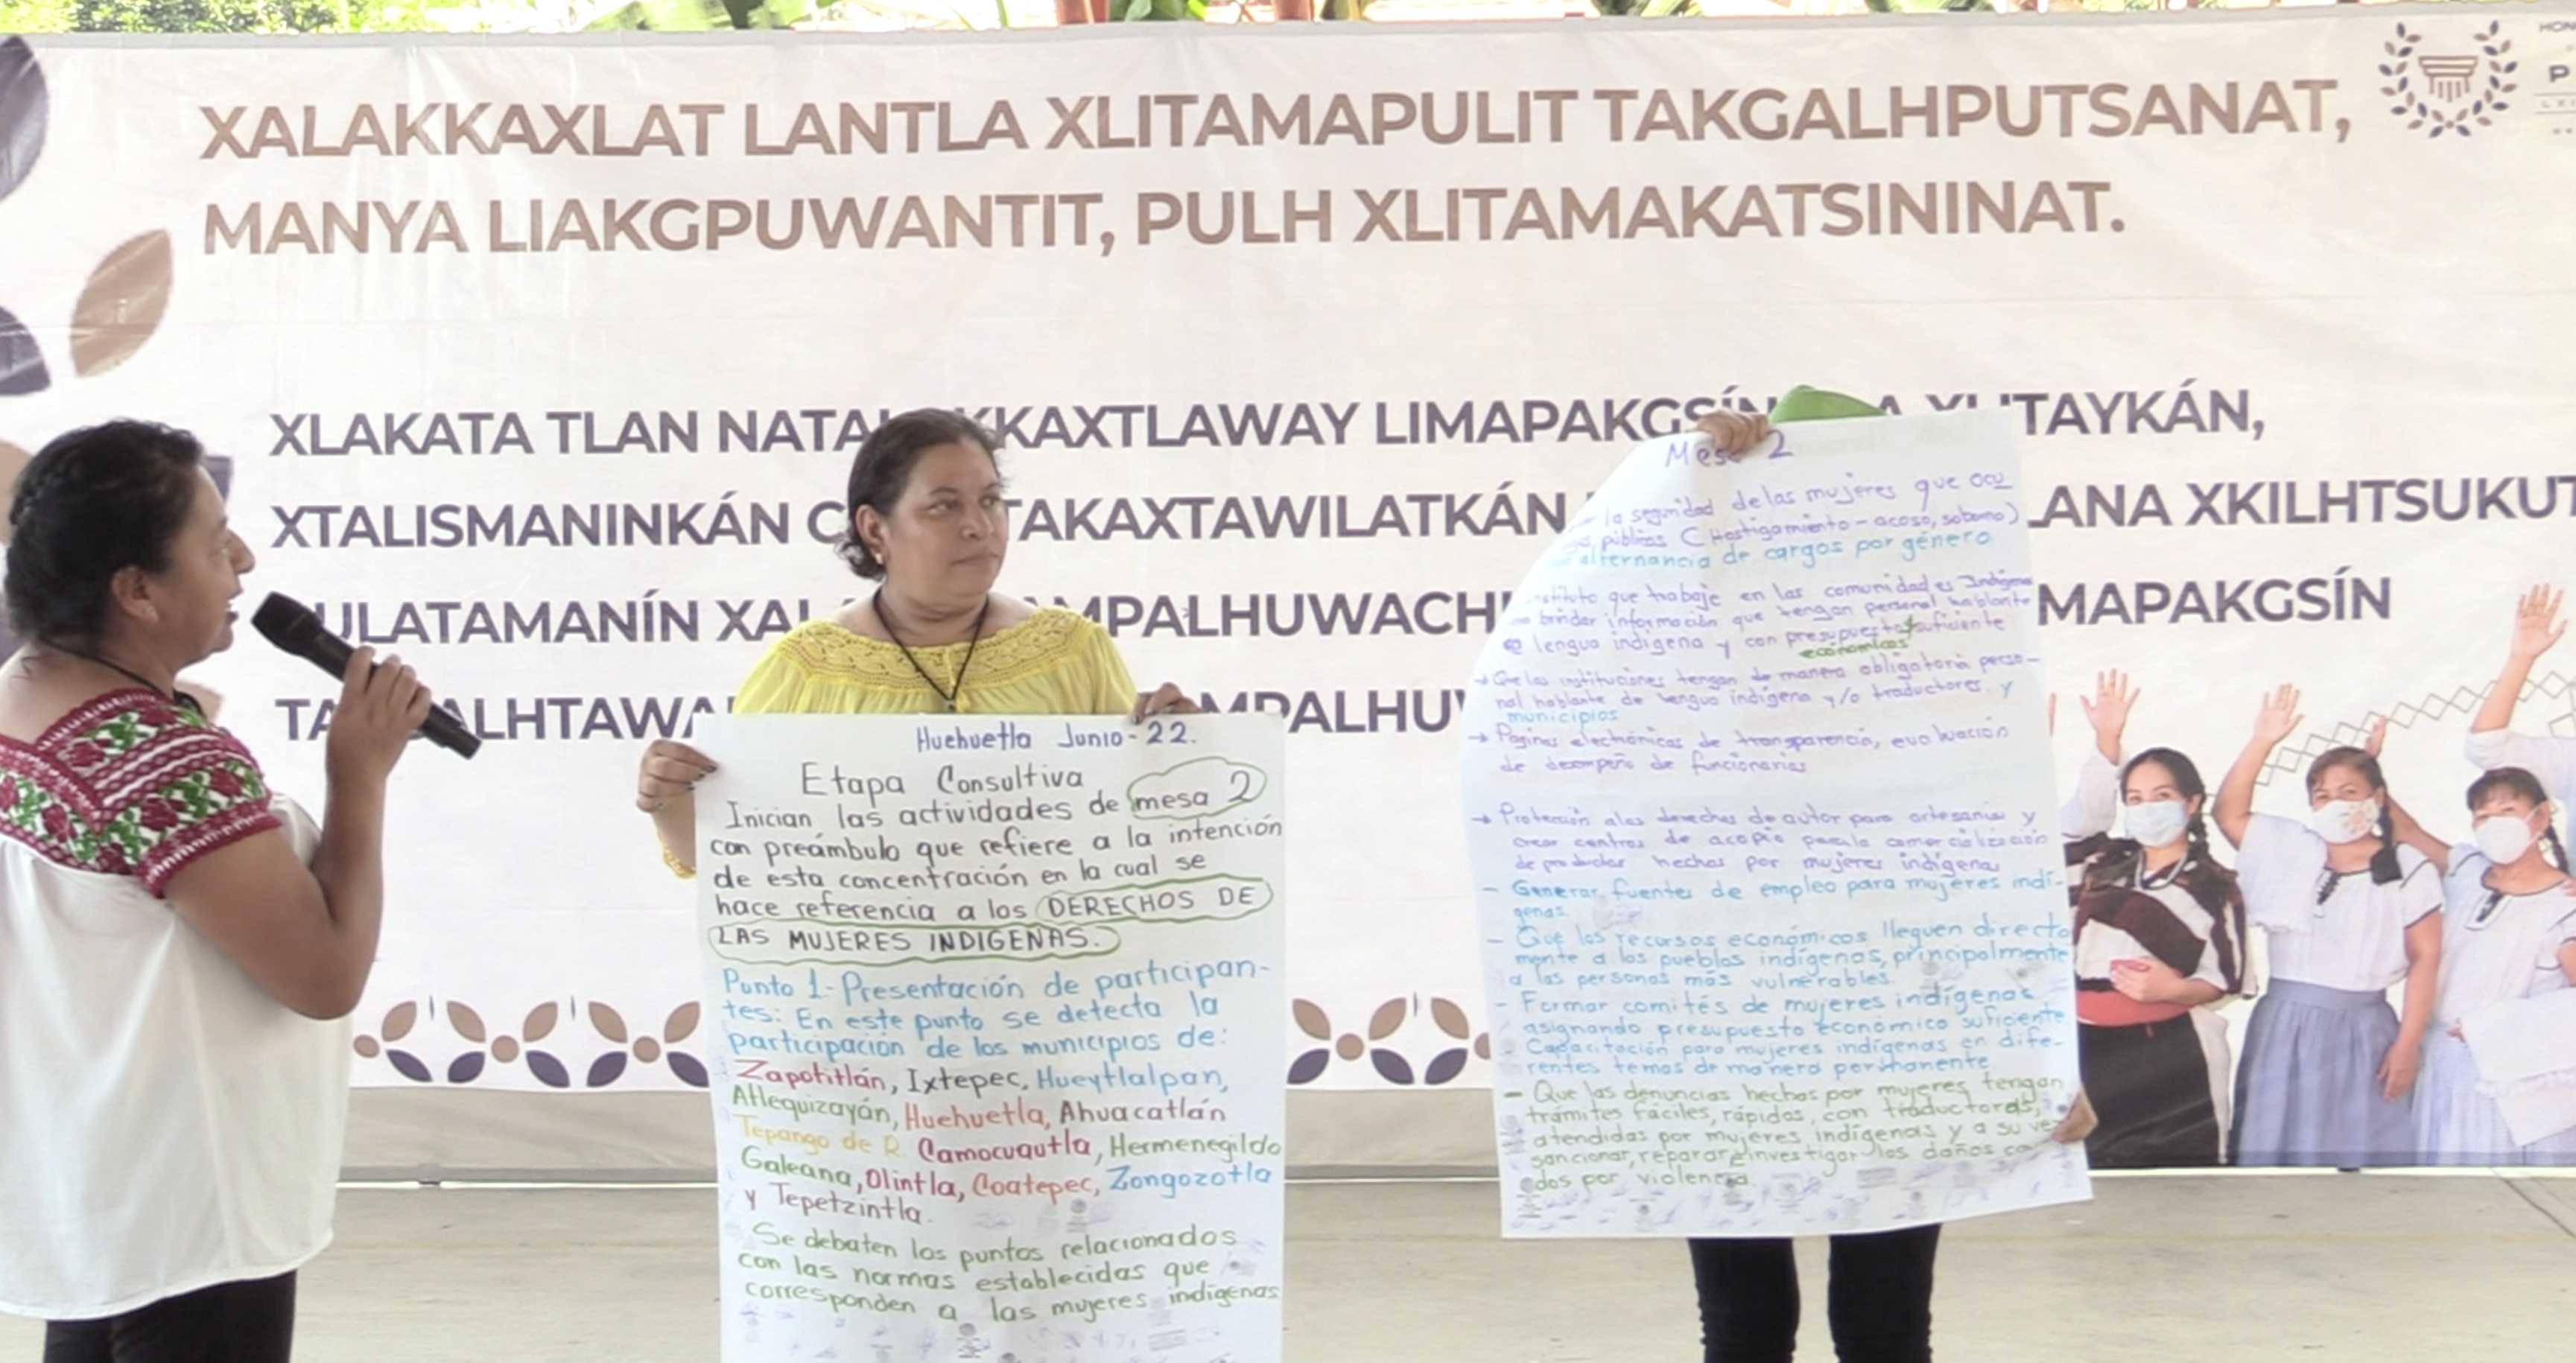 XALAKKAXLAT LANTLA XLITAMAPULIT TAKGALHPUTSANAT,
MANYA LIAKGPUWANTIT, PULH XLITAMAKATSININAT.
XLAKATA TLAN KKAXTLAWAY LIMAPAKGSÍN
XTALISMANINKÁN TAKAXTAWILATKÁN XKILHTSUKUT
MAPAKGSÍN
Huehuetla Junio-22.
Etapa Consultiva
Inician las actividades de mesa 2
con preámbulo que refiere a la intención
de esta concentración en la cual se
hace referencia a los DERECHOS DE
LAS MUJERES INDIGENAS.
Punto 1.-Presentación de participan-
tes: En este punto se detecta la
participación de los municipios de:
Zapotitlán, Ixtepec, Hueytlalpan,
Atlequizayán, Huehuetla, Ahuacatlán
Tepango de R. Camocuautla, Hermenegildo
Galeana, Olintla, Coatepec, Zongozotla
y Tepetzintla.
Se debaten los puntos relacionados
con las normas establecidas que
corresponden a las mujeres indígenas
Mesa 2
la seguridad de las mujeres que ocu
públicos (Hostigamiento-acoso, soborno)
alternancia de cargos por género
que trabaje en las comunidades Indígena
brindar información que tengan personal hablante
lengua indígena y con presupuesto suficiente
económicos
→ Que las instituciones tengan de manera obligatoria perso-
nal hablante de lengua indígena y/o traductores. y
municipios
→ Paginas electrónicas de transparencia, evaluación
de desempeño de funcionarios
→ Protección a los derechos de autor para artesanias y
crear centros de acopio para la comercialización
de productos hechos por mujeres indígenas
- Generar fuentes de empleo para mujeres indí-
genas.
- Que los recursos económicos lleguen directa
mente a los pueblos indígenas, principalmente
a las personas más vulnerables.
- Formar comités de mujeres indígenas
asignando presupuesto económico suficiente
- Capacitación para mujeres indígenas en dife-
rentes temas de manera permanente
- Que las denuncias hechas por mujeres tengan
trámites fáciles, rápidos, con traductoras,
atendidas por mujeres indígenas y a su vez
sancionar, reparar e investigar los daños
dos por violencia.